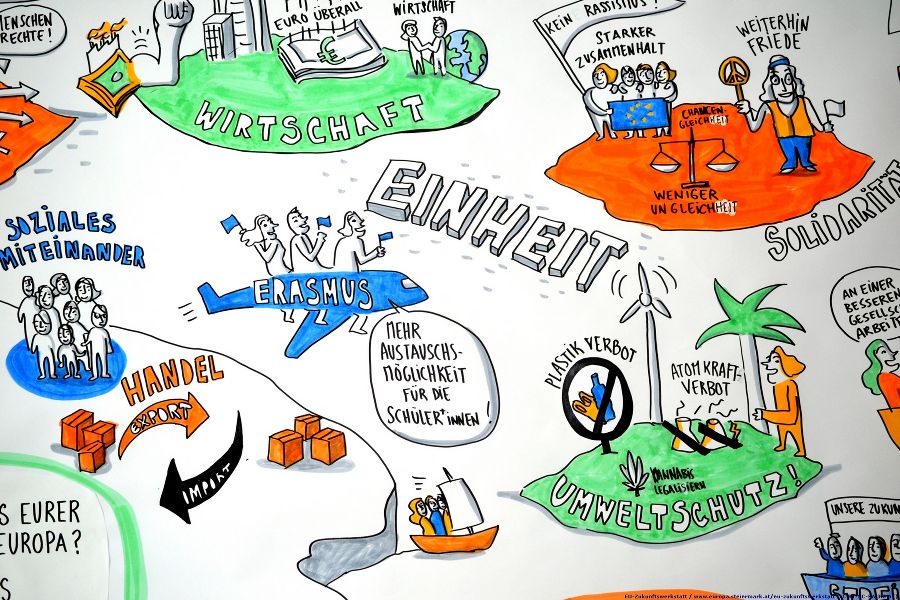 MENSCHEN
RECHTE!
EURO ÜBERALL
WIRTSCHAFT
€
WIRTSCHAFT
KEIN RASSISMUS!
STARKER
ZUSAMMENHALT
WEITERHIN
FRIEDE
CHANCEN-
GLEICHHEIT
WENIGER
UNGLEICHHEIT
SOLIDARITÄT
EINHEIT
SOZIALES
MITEINANDER
ERASMUS
MEHR
AUSTAUSCHS-
MÖGLICHKEIT
FÜR DIE
SCHÜLER*INNEN!
HANDEL
EXPORT
IMPORT
PLASTIK VERBOT
ATOMKRAFT-
VERBOT
CANNABIS
LEGALISIERN
UMWELTSCHUTZ!
AN EINER
BESSEREN
GESELLSC
ARBEITE
UNSERE ZUKUN
S EURER
EUROPA?
S